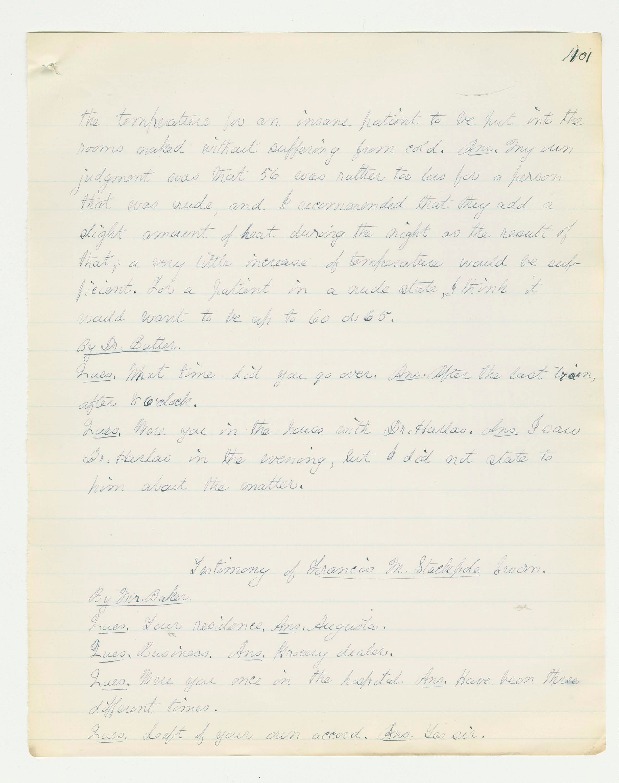 101
the temperature for an insane patient to be put into the
rooms naked without suffering from cold. Ans. My own
judgment was that 56 was rather too low for a person
that was nude, and I recommended that they add a
slight amount of heat during the night as the result of
that; a very little increase of temperature would be suf-
ficient. For a patient in a nude state, I think it
would want to be up to 60 or 65.
By Dr. Butler.
Ques. What time did you go over. Ans. After the last train,
after 6 o'clock.
Ques. Were you in the house with Dr. Harlow. Ans. I saw
Dr. Harlow in the evening, but I did not state to
him about the matter.
Testimony of Francis M. Stackpole, Sworn.
By Mr. Baker.
Ques. Your residence. Ans. Augusta.
Ques. Business. Ans. Grocery dealer.
Ques. Were you once in the hospital Ans. Have been three
different times.
Ques. Left of your own accord. Ans. Yes sir.